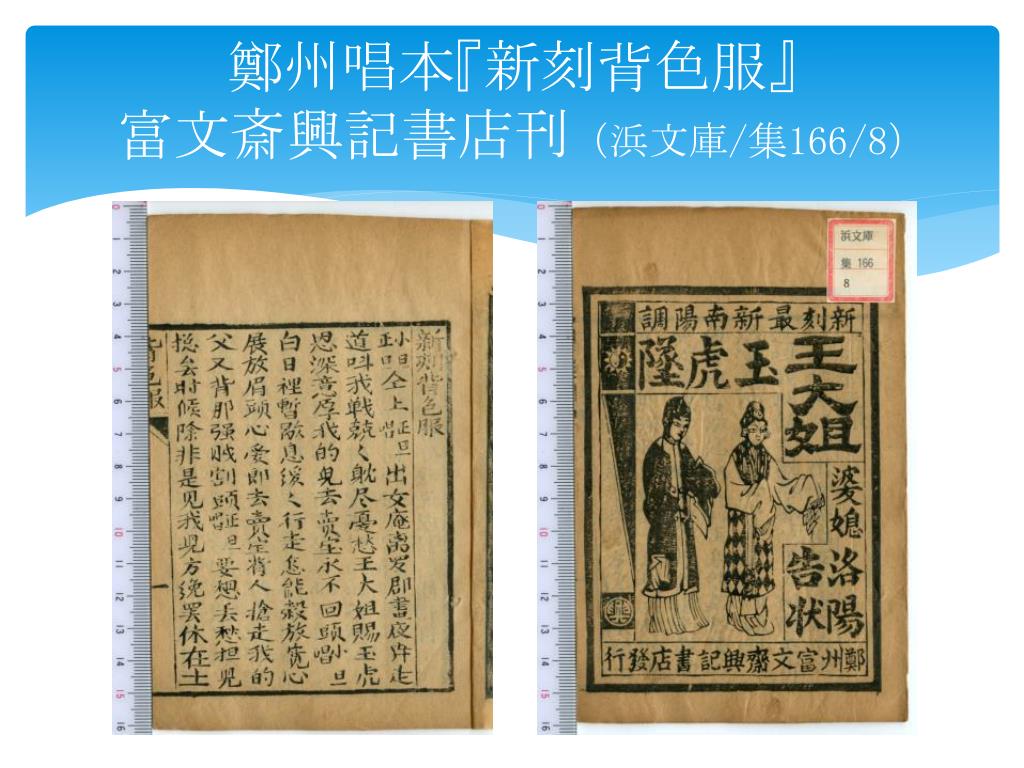 鄭州唱本『新刻背色服』
富文斎興記書店刊 (浜文庫/集166/8)
新刻背色服
小旦仝上 正旦唱 出女庵离罗郡晝夜奔走
道叫我戦兢く躭尽憂愁王大姐賜玉虎
恩深意厚我的皃去賣宝永不回頭小旦唱
白日裡暫歇息緩く行走怎能穀放宽心
展放眉頭心爱郎去賣宝背人搶走我的
父又背那强贼割頭正旦唱要想丢愁担皃
捴矣时候除非是见我皃方绝罢休在土
浜文庫
集 166
8
新刻最新南陽調
王大姐
玉虎墜
婆媳
洛陽
告狀
鄭州富文齋興記書店發行